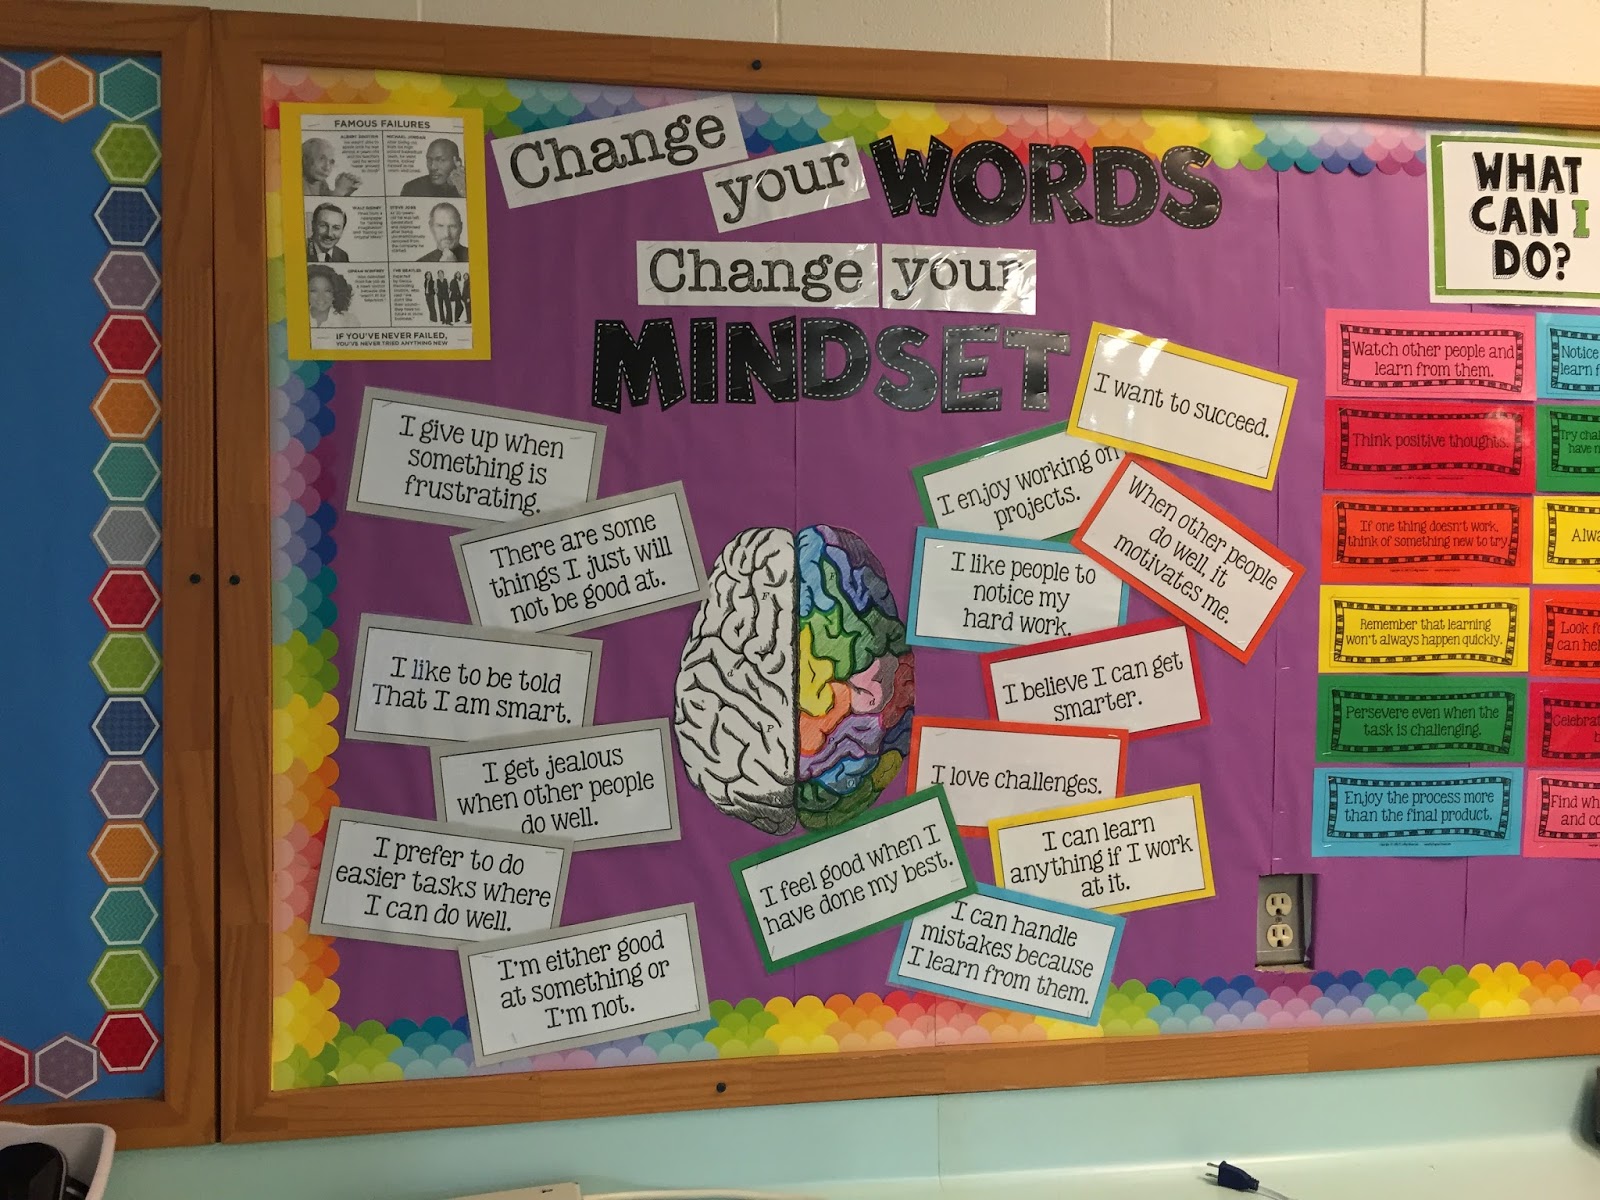 FAMOUS FAILURES
ALBERT EINSTEIN
MICHAEL JORDAN
WALT DISNEY
STEVE JOBS
OPRAH WINFREY
THE BEATLES
IF YOU'VE NEVER FAILED,
YOU'VE NEVER TRIED ANYTHING NEW
Change your WORDS
Change your
MINDSET
I give up when
something is
frustrating.
There are some
things I just will
not be good at.
I like to be told
That I am smart.
I get jealous
when other people
do well.
I prefer to do
easier tasks where
I can do well.
I'm either good
at something or
I'm not.
I want to succeed.
I enjoy working on
projects.
When other people
do well, it
motivates me.
I like people to
notice my
hard work.
I believe I can get
smarter.
I love challenges.
I can learn
anything if I work
at it.
I feel good when I
have done my best.
I can handle
mistakes because
I learn from them.
WHAT
CAN I
DO?
Watch other people and
learn from them.
Notice
learn f
Think positive thoughts.
Try chal
have n
If one thing doesn't work,
think of something new to try.
Alwa
Remember that learning
won't always happen quickly.
Look fo
can hel
Persevere even when the
task is challenging.
Celebrat
Enjoy the process more
than the final product.
Find wh
and co